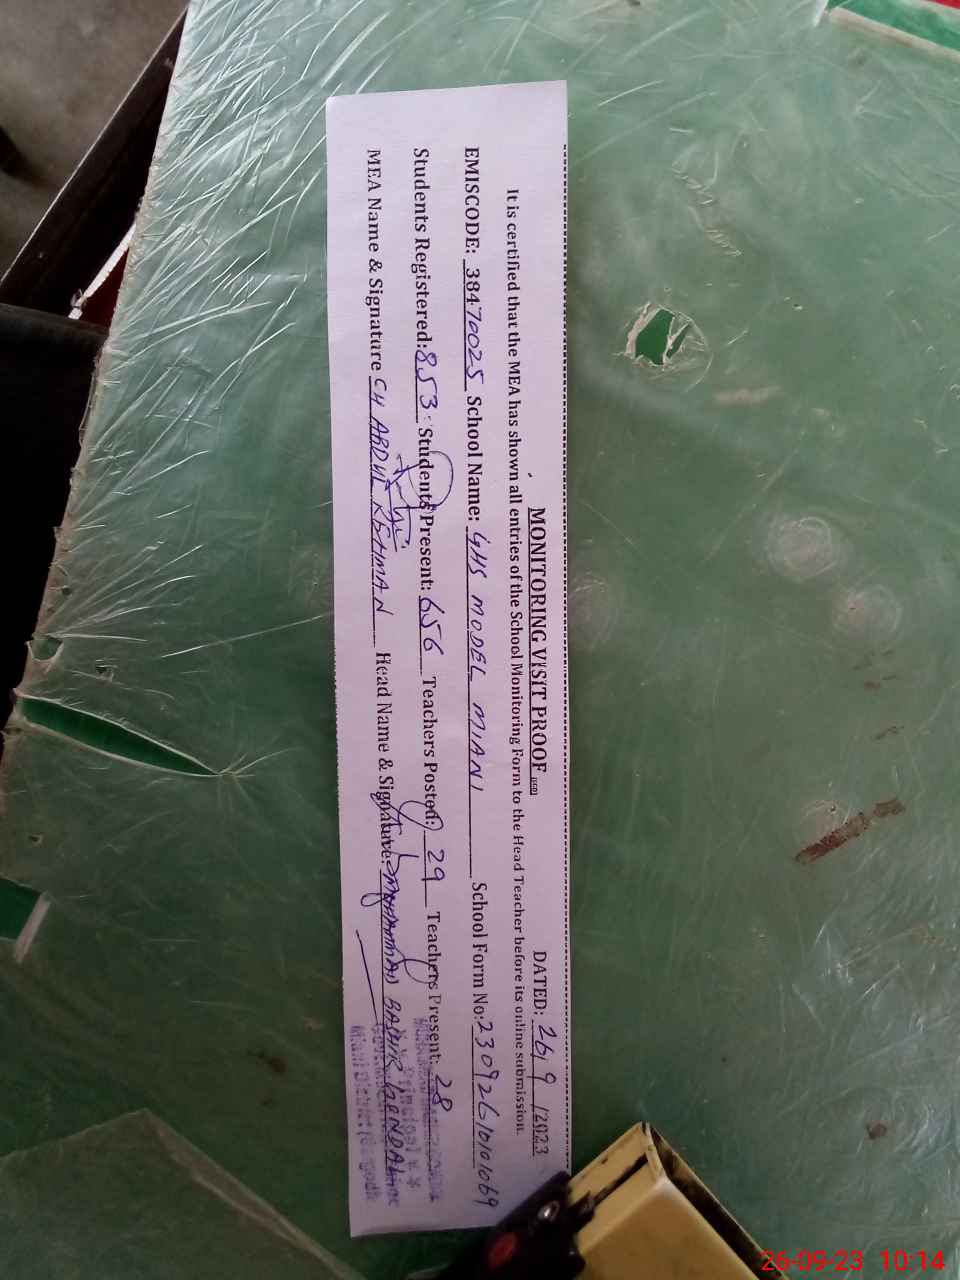 MONITORING VISIT PROOF DATED: 26/9/2023
It is certified that the MEA has shown all entries of the School Monitoring Form to the Head Teacher before its online submission.
EMISCODE: 38470025 School Name: GHS MODEL MIANI School Form No: 23092610101069
Students Registered: 853 Students Present: 656 Teachers Posted: 29 Teachers Present: 28
MEA Name & Signature CH ABDUL REHMAN Head Name & Signature: MUHAMMAD BASHIR
Principal
Miani District Sargodha
26-09-23 10:14